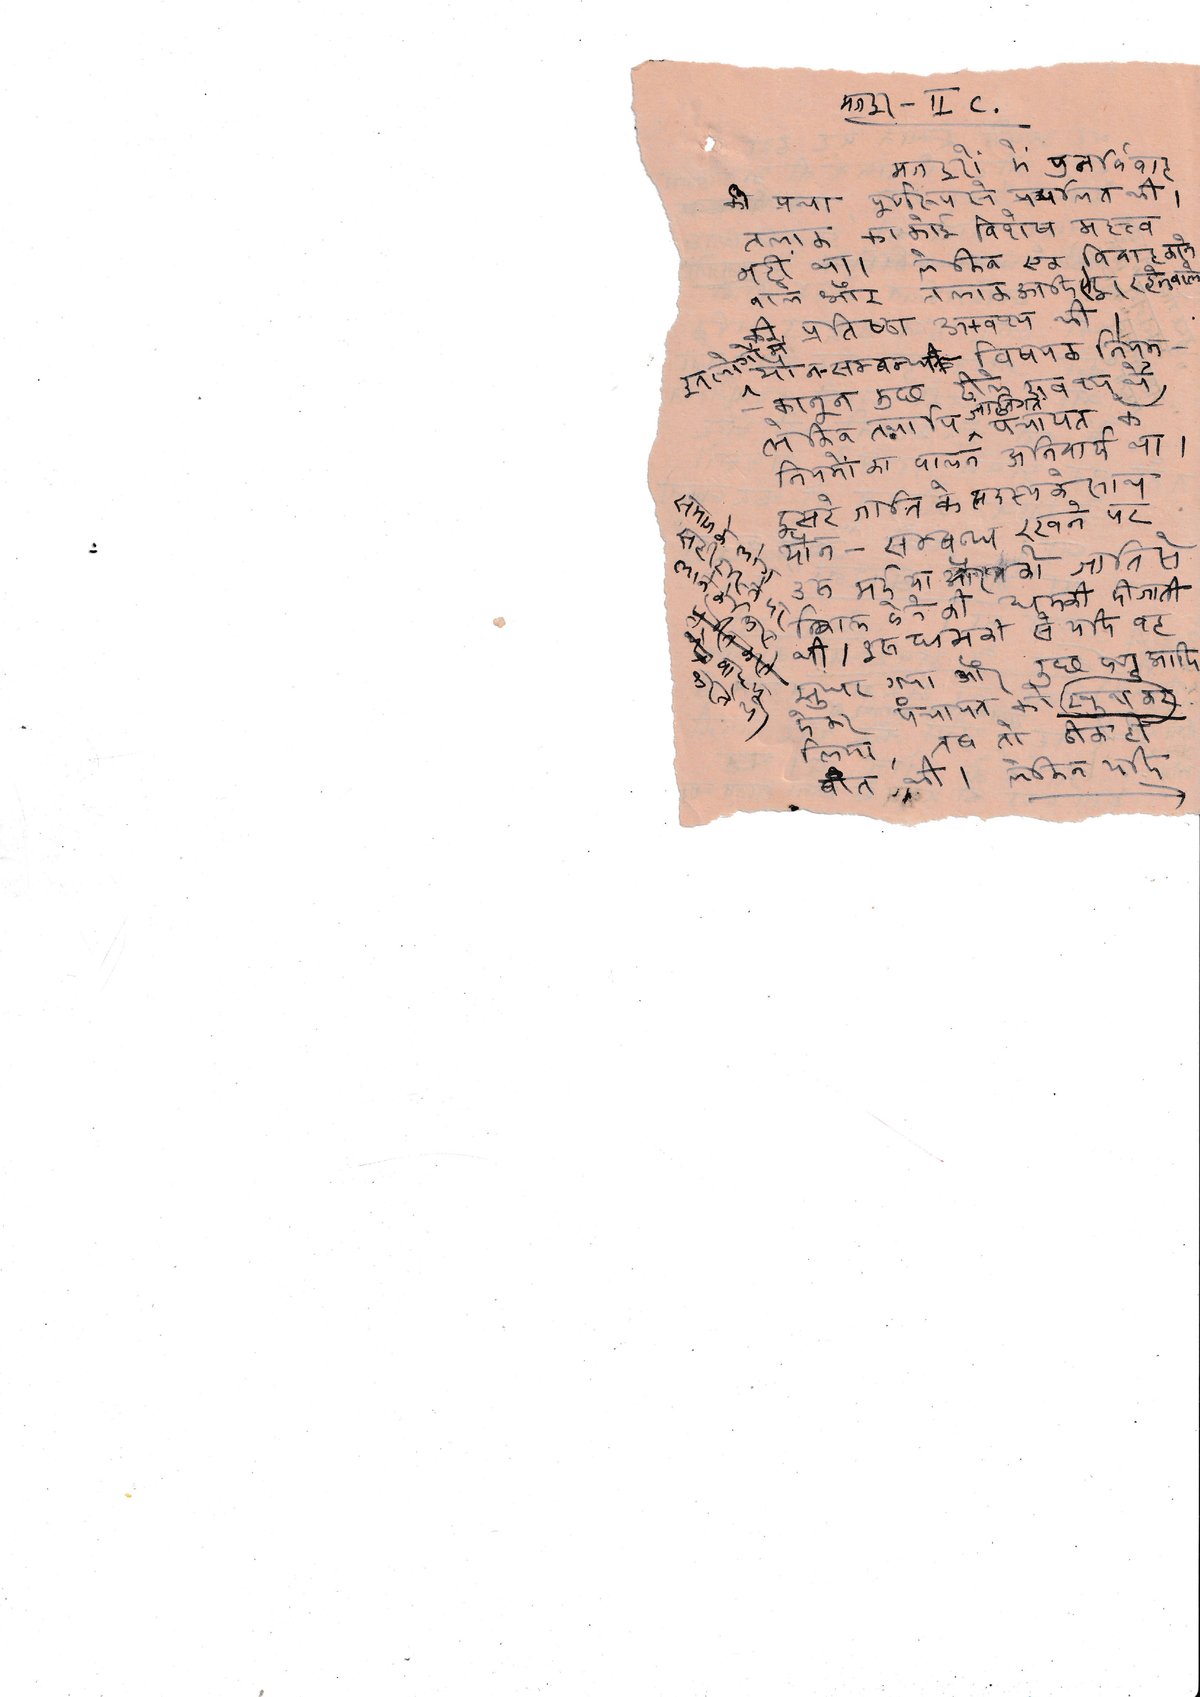 मजदूर - II C.
मजदूरों में पुनर्विवाह
की प्रथा पूर्णरूपसे प्रचलित थी।
तलाक का कोई विशेष महत्त्व
नहीं था। लेकिन एक विवाह करने
वाले और तलाक आदि से दूर रहनेवाले
की प्रतिष्ठा अवश्य थी।
इनलोगों में यौन-सम्बन्ध विषयक नियम-
-कानून कुछ ढीले अवश्य थे,
लेकिन तथापि जातिगत पंचायत के
नियमों का पालन अनिवार्य था।
दूसरे जाति के सदस्य के साथ
यौन-सम्बन्ध रखने पर
उस मर्द या औरत को जाति से
निकाल देने की धमकी दी जाती
थी। इस धमकी से यदि वह
सुधर गया और कुछ दण्ड आदि
देकर पंचायत को खुश कर
लिया, तब तो ठीक ही
बात थी। लेकिन यदि
समाज के लोग
लाने को उसे
करते थे)